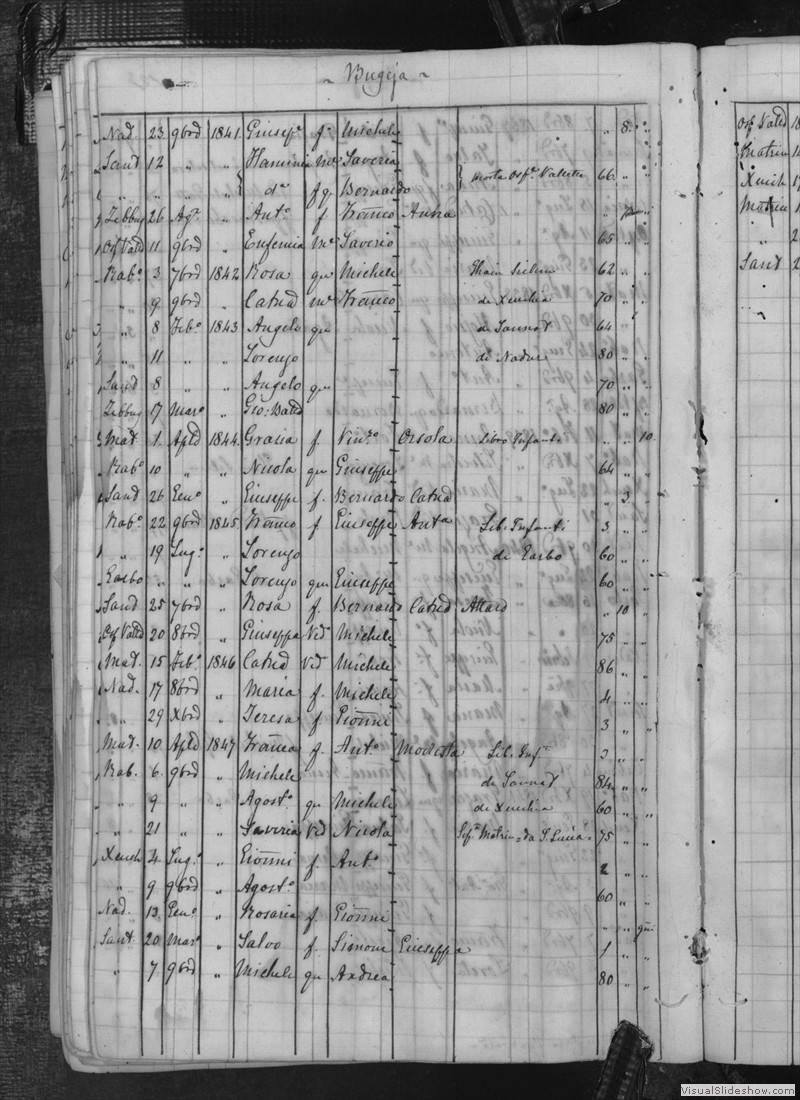 ~ Bugeja ~
Nad. 23 9brd 1841. Giusep.e f.a Michele „ 8. „
Sand 12 „ „ Flaminia m.e Saveria
„ „ „ d.a f q. Bernardo { morta Osp.le Valletta 66 „ „
Zebbug 26 Ag.o „ Ant.o f Franco Anna „ „
Osp Valld 11 9brd „ Eufemia m.e Saverio 65 „
Rab.o 3 7brd 1842 Rosa qu Michele Ghain Sielem 62 „
„ 9 9brd „ Catrid m.e Franco de Xeuchia 70 „
„ 8 Feb.o 1843 Angelo qu de Sannat 64 „
„ 11 „ „ Lorenzo de Nadur 80 „ „
Sand 8 „ „ Angelo qu 70 „ „
Zebbug 17 Mar.o „ Gio: Batta 80 „ „
Mat. 1. Apld 1844. Grazia f. Vinz.o Orsola Libro Infanti „ „ 10.
Rab.o 10 „ „ Nicola qu Giuseppe 64 „ „
Sand 26 Gen.o „ Giuseppe f. Bernardo Catrid „ 3 „
Rab.o 22 9brd 1845 Franco f Giuseppe Anta Lib. Infanti 3 „ „
„ 19 Lug.o „ Lorenzo de Garbo 60 „ „
Garbo „ „ „ Lorenzo qu Giuseppe 60 „ „
Sand 25 7brd „ Rosa f. Bernardo Catrid Attard „ 10 „
Osp Valld 20 8brd „ Giuseppa Ved.a Michele 75 „ „
Mat. 15 Feb.o 1846 Catrid Ved Michele 86 „ „
Nad. 17 8brd „ Maria f. Michele 4 „ „
„ 29 Xbrd „ Teresa f Gionni 3 „ „
Mat. 10 Apld 1847 Franca f. Ant.o Modesta Lib. Inf.ti 3 „ „
Rab. 6. 9brd „ Michele de Sannat 84 „ „
„ 9 „ „ Agost.o qu Michele de Xeuchia 60 „ „
„ 21 „ „ Saveria Ved Nicola Sep.a Matrice da S. Lucia 75 „ „
Xeuch 24. Lug.o „ Gionni f. Ant.o 2 „ „
„ 9 9brd „ Agost.o 60 „ „
Nad. 13 Gen.o „ Rosaria f Gionni „ „
Sant. 20 Mar.o „ Salvo f. Simone Giuseppa 1 „ „
„ 7 9brd „ Michele qu Andrea 80 „ „
Osp Valld
Matrice
Xeuch
Matrice
„
Sand
VisualSlideshow.com